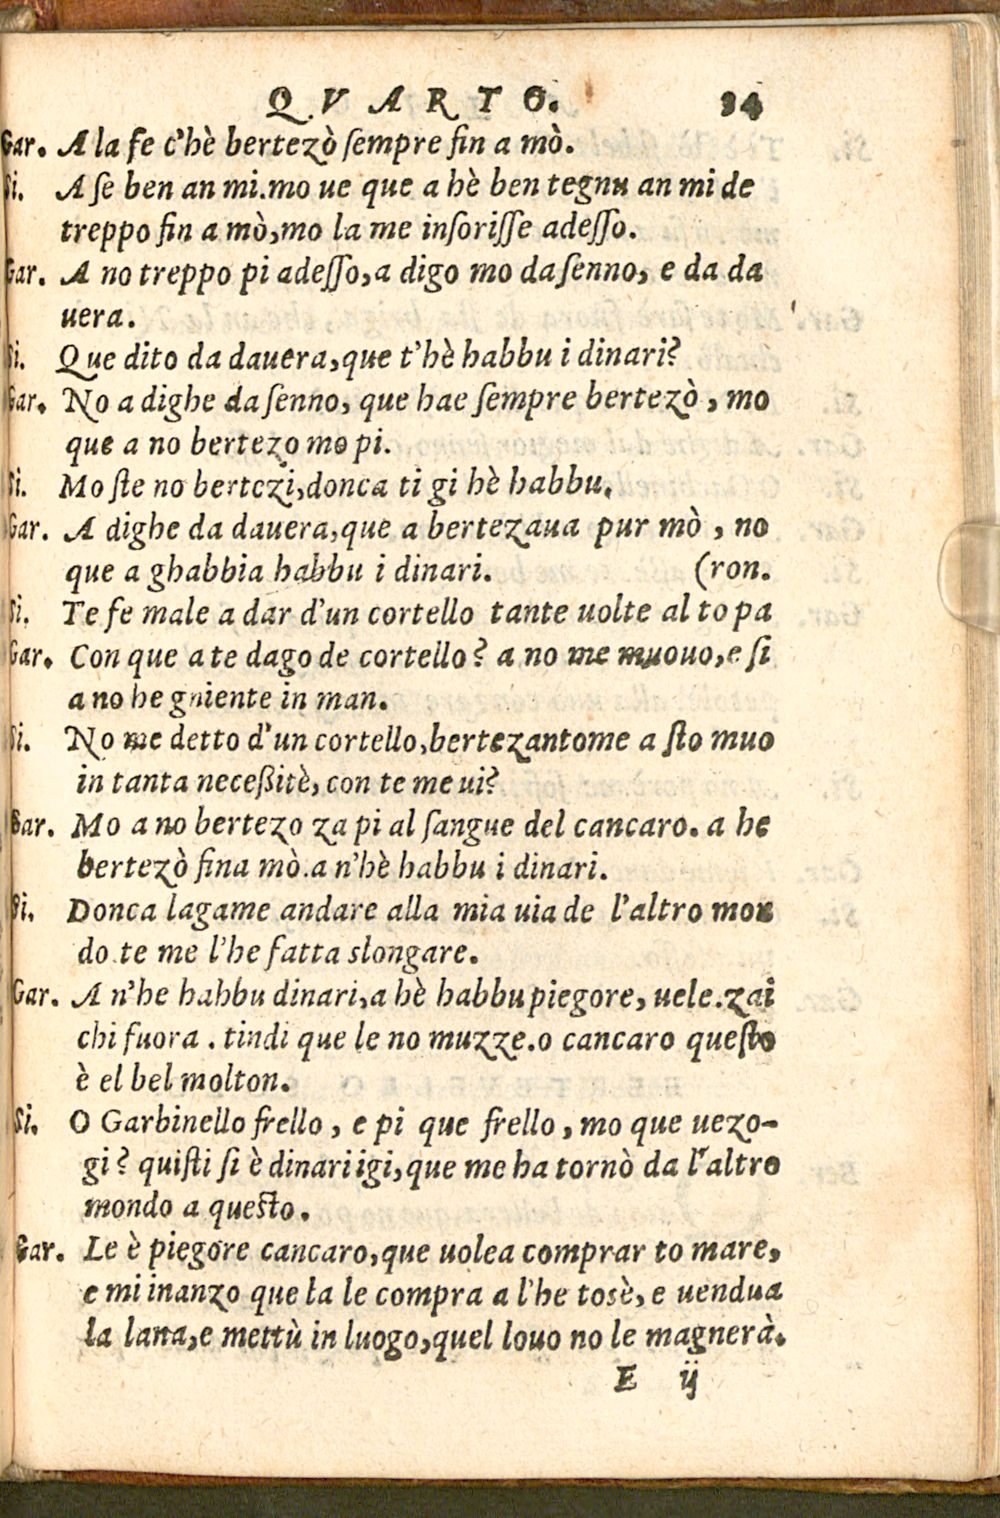 QVARTO. 34
Gar. A la fe c'hè bertezò ſempre fin a mò.
Si. A ſe ben an mi.mo ue que a hè ben tegnu an mi de
treppo fin a mò,mo la me inſoriſſe adeſſo.
Gar. A no treppo pi adeſſo,a digo mo daſenno, e da da
uera.
Si. Que dito da dauera,que t'hè habbu i dinari?
Gar. No a dighe da ſenno, que hae ſempre bertezò, mo
que a no bertezo mo pi.
Si. Mo ſte no bertezi,donca ti gi hè habbu.
Gar. A dighe da dauera,que a bertezaua pur mò, no
que a ghabbia habbu i dinari. (ron.
Si. Te fe male a dar d'un cortello tante uolte al to pa
Gar. Con que a te dago de cortello? a no me muouo,e ſi
a no he gniente in man.
Si. No me detto d'un cortello,bertezantome a ſto muo
in tanta neceßitè, con te me ui?
Gar. Mo a no bertezo za pi al ſangue del cancaro. a he
bertezò fina mò.a n'hè habbu i dinari.
Si. Donca lagame andare alla mia uia de l'altro mon
do.te me l'he fatta slongare.
Gar. A n'he habbu dinari,a hè habbu piegore, uele.zai
chi fuora. tindi que le no muzze.o cancaro queſto
è el bel molton.
Si. O Garbinello frello, e pi que frello, mo que uezo-
gi? quiſti ſi è dinari igi,que me ha tornò da l'altro
mondo a queſto.
Gar. Le è piegore cancaro,que uolea comprar to mare,
e mi inanzo que la le compra a l'he tosè, e uendua
la lana,e mettù in luogo,quel louo no le magnerà.
E ij